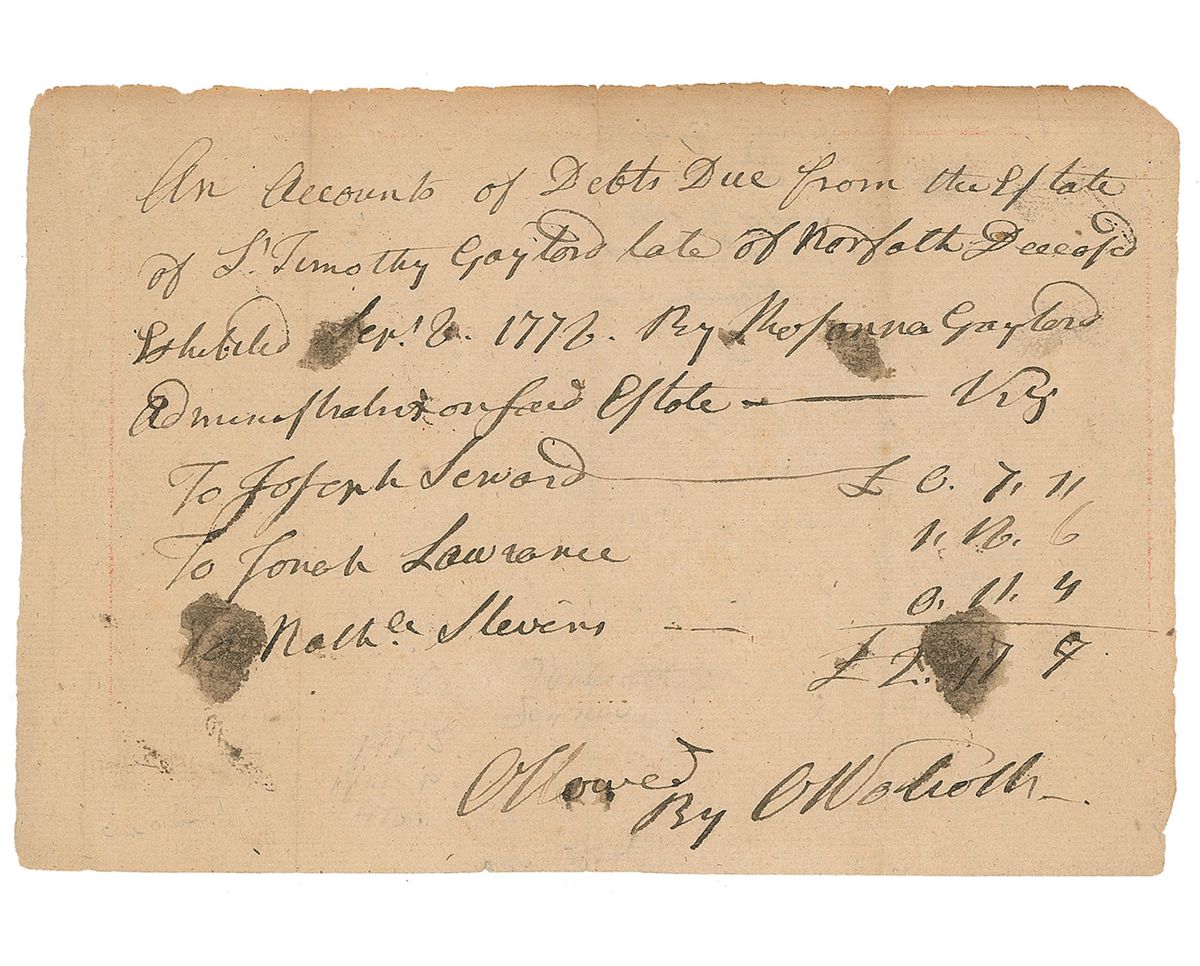 An Accounts of Debts Due from the Estate
of Lt Timothy Gaylord late of Norfolk Deceasd
Exhibited Sepr. 6. 1776. By Rhosanna Gaylord
Administratrix on said Estate — Viz
To Joseph Seward — £ 0. 7. 11
To Jonah Lawrance 1. 18. 6
To Nathll Stevens — 0. 11. 4
£ 2. 17 9
Allowed
By OWolcott